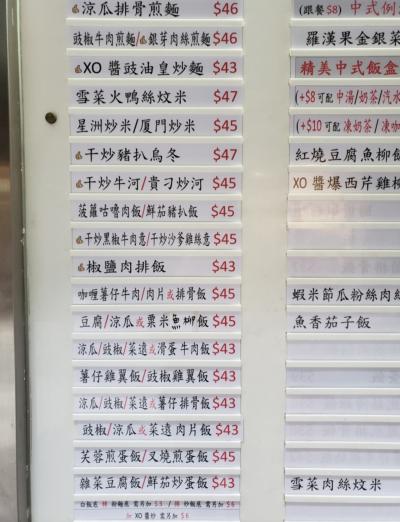 涼瓜排骨煎麵 $46
豉椒牛肉煎麵/銀芽肉絲煎麵 $46
XO 醬豉油皇炒麵 $43
雪菜火鴨絲炆米 $47
星洲炒米/厦門炒米 $45
干炒豬扒烏冬 $47
干炒牛河/貴刁炒河 $45
菠蘿咕嚕肉飯/鮮茄豬扒飯 $45
干炒黑椒牛肉意/干炒沙爹雞絲意 $45
椒鹽肉排飯 $43
咖喱薯仔牛肉/肉片或排骨飯 $45
豆腐/涼瓜或粟米魚柳飯 $45
涼瓜/豉椒/菜遠或滑蛋牛肉飯 $43
薯仔雞翼飯/豉椒雞翼飯 $43
涼瓜/豉椒/菜遠或薯仔排骨飯 $43
豉椒/涼瓜或菜遠肉片飯 $43
芙蓉煎蛋飯/叉燒煎蛋飯 $45
雜菜豆腐飯/鮮茄炒蛋飯 $43
白飯底 轉 粉麵底 需另加 $3 / 轉 炒飯底 需另加 $6
加 XO 醬炒 需另加 $6
(跟餐 $8) 中式例
羅漢果金銀菜
精美中式飯盒
(+$8 可配 中湯/奶茶/汽水
(+$10 可配 凍奶茶/凍咖
紅燒豆腐魚柳飯
XO 醬爆西芹雞柳
蝦米節瓜粉絲肉絲
魚香茄子飯
雪菜肉絲炆米